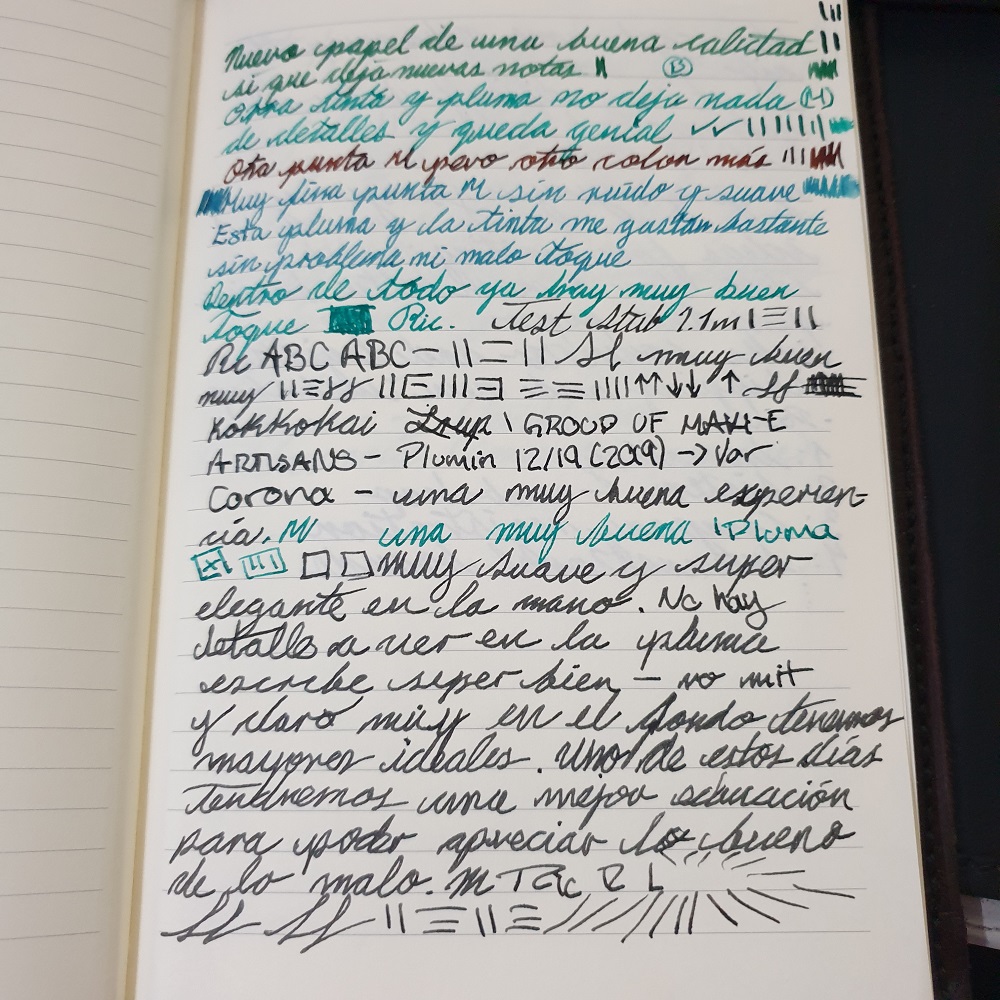 Nuevo papel de una buena calidad
si que deja nuevas notas B
Otra tinta y pluma no deja nada (M)
de detalles y queda genial
Otra punta M pero otro color más
Muy fina punta M sin ruido y suave
Esta pluma y la tinta me gustan bastante
sin problema ni malo toque
Dentro de todo ya hay muy buen
toque Ric. Test Stub 1.1m
Ric ABC ABC muy bien
muy
Kokkokai GROUP OF MAKI-E
ARTISANS - Plumin 12/19 (2019) → Var
Corona - una muy buena experien-
cia. M una muy buena Pluma
muy suave y super
elegante en la mano. No hay
detalle a ver en la pluma
escribe super bien - no mit
y claro muy en el fondo tenemos
mayores ideales. Uno de estos días
tendremos una mejor educación
para poder apreciar lo bueno
de lo malo. M